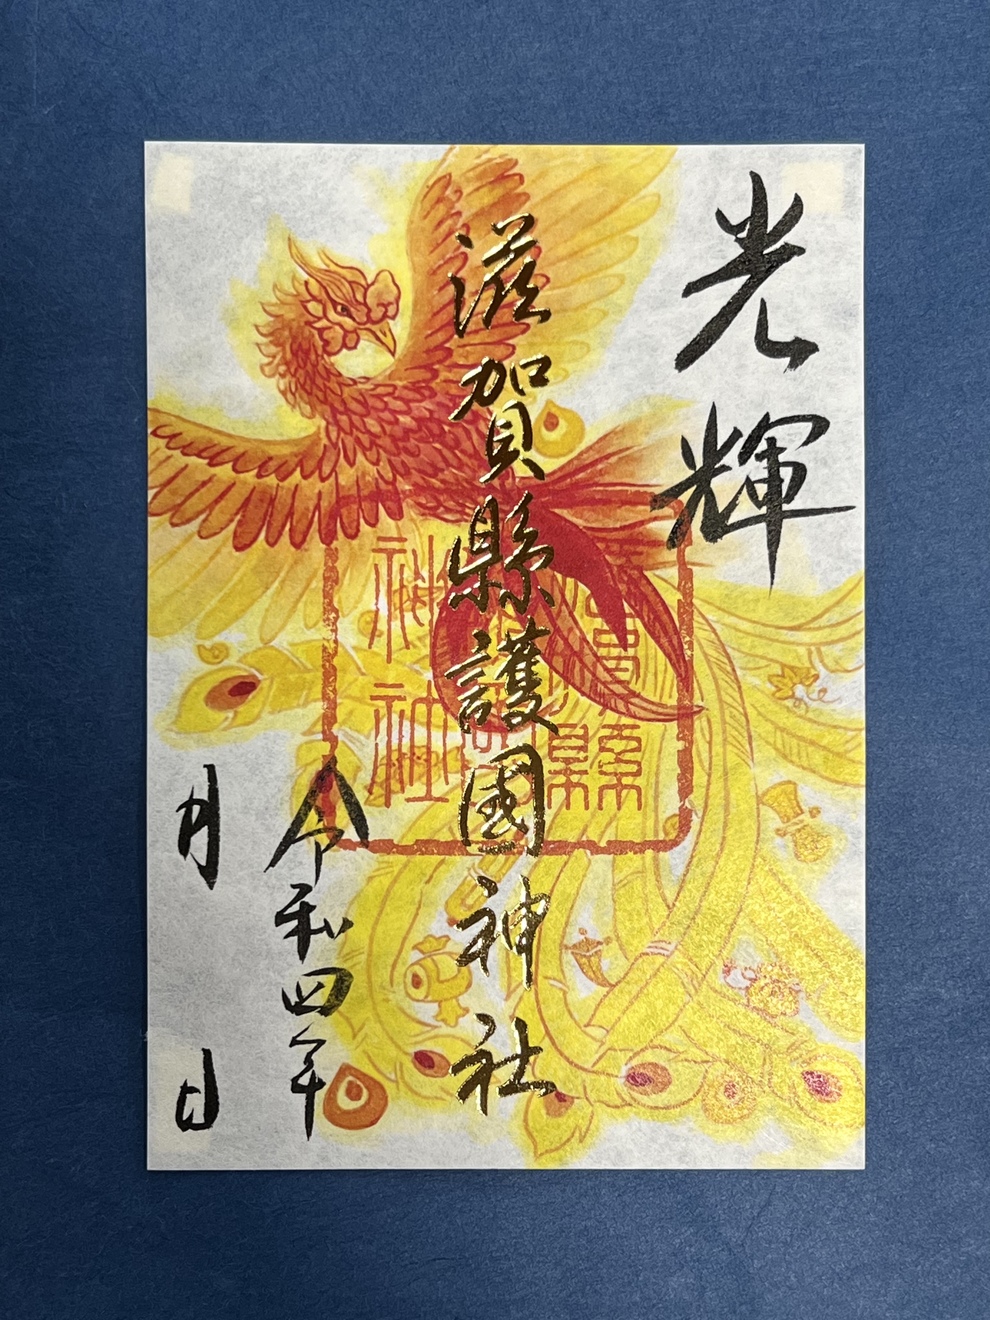 光輝
滋賀縣護國神社
令和四年
月 日
滋賀縣
護國
神社